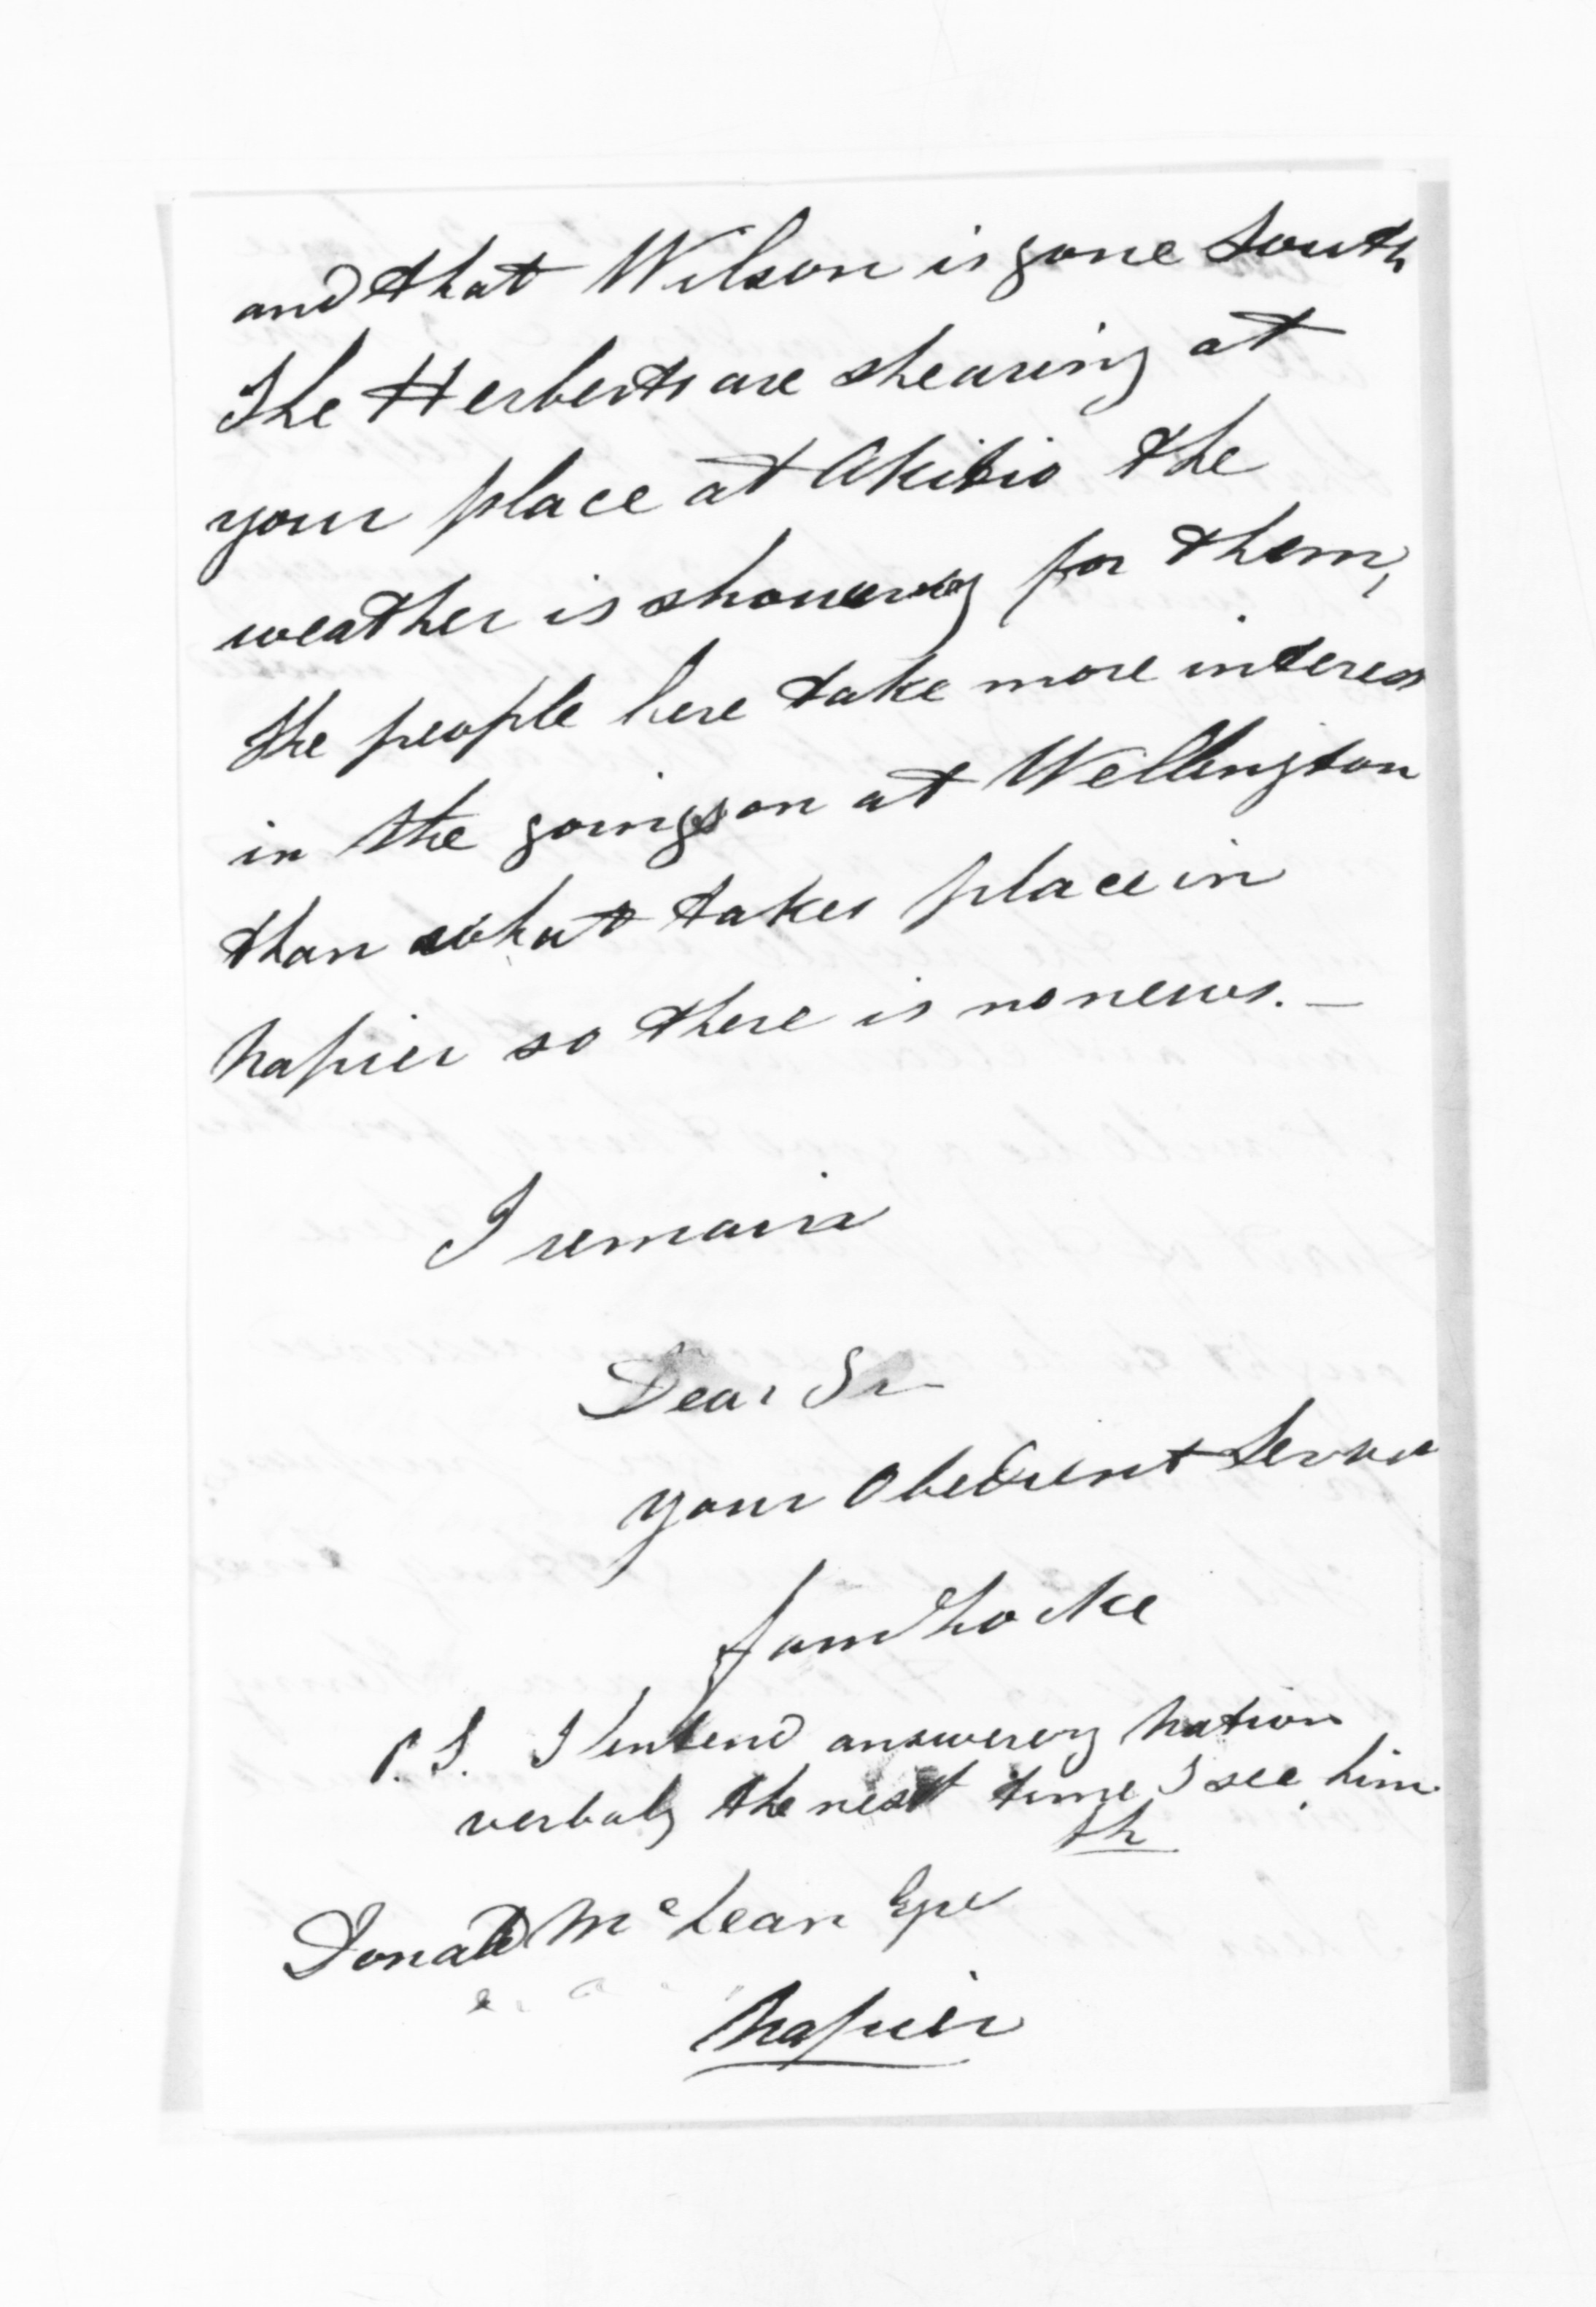 and that Wilson is gone South
The Herberts are shearing at
your place at Akitio the
weather is showery for them,
the people here take more interest
in the goings on at Wellington
than what takes place in
Napier so there is no news. —
I remain
Dear Sr
your Obedient Servant
P.S. I intend answering
verbaly the next time I see him.
Donald McLean Esqre
Napier